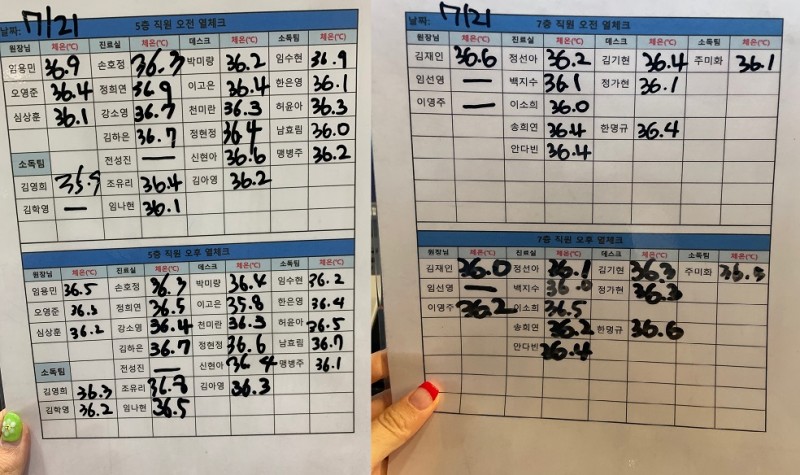 날짜: 7/21
5층 직원 오전 열체크
원장님 체온(℃) 진료실 체온(℃) 데스크 체온(℃) 소독팀 체온(℃)
임용민 36.9 손호정 36.3 박미량 36.2 임수현 36.9
오영준 36.4 정희연 36.9 이고은 36.4 한은영 36.1
심상훈 36.1 강소영 36.7 천미란 36.3 허윤아 36.3
김하은 36.7 정현정 36.4 남효림 36.0
소독팀 전성진 — 신현아 36.6 맹병주 36.2
김영희 35.9 조유리 36.4 김아영 36.2
김학영 — 임나현 36.1
5층 직원 오후 열체크
원장님 체온(℃) 진료실 체온(℃) 데스크 체온(℃) 소독팀 체온(℃)
임용민 36.5 손호정 36.3 박미량 36.4 임수현 36.2
오영준 36.3 정희연 36.5 이고은 35.8 한은영 36.4
심상훈 36.2 강소영 36.4 천미란 36.3 허윤아 36.5
김하은 36.7 정현정 36.6 남효림 36.7
전성진 — 신현아 36.4 맹병주 36.1
소독팀
김영희 36.3 조유리 36.8 김아영 36.3
김학영 36.2 임나현 36.5
날짜: 7/21
7층 직원 오전 열체크
원장님 체온(℃) 진료실 체온(℃) 데스크 체온(℃) 소독팀 체온(℃)
김재인 36.6 정선아 36.2 김기현 36.4 주미화 36.1
임선영 — 백지수 36.1 정가현 36.1
이영주 — 이소희 36.0
송희연 36.4 한명규 36.4
안다빈 36.4
7층 직원 오후 열체크
원장님 체온(℃) 진료실 체온(℃) 데스크 체온(℃) 소독팀 체온(℃)
김재인 36.0 정선아 36.1 김기현 36.3 주미화 36.5
임선영 — 백지수 36.0 정가현 36.3
이영주 36.2 이소희 36.5
송희연 36.2 한명규 36.6
안다빈 36.4